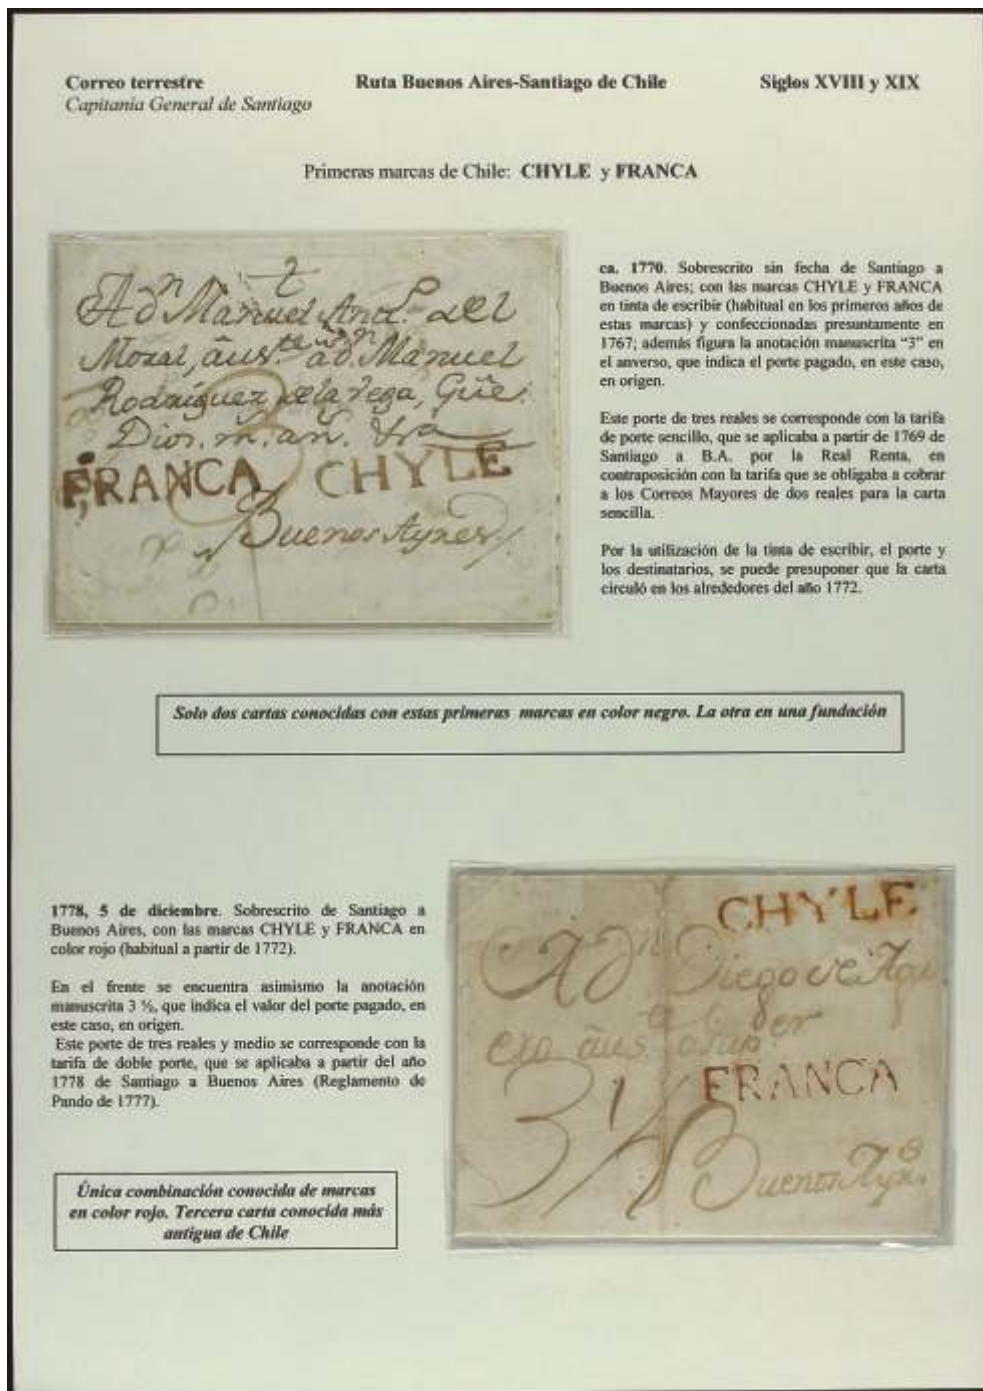 Correo terrestre
Capitanía General de Santiago
Ruta Buenos Aires-Santiago de Chile
Siglos XVIII y XIX
Primeras marcas de Chile: CHYLE y FRANCA
A Dn Manuel del
Moral, aus.te a dn Manuel
Rodriguez de la Vega, Gũe.
Dios. m. an.
FRANCA CHYLE
3
Buenos Ayres
ca. 1770. Sobrescrito sin fecha de Santiago a
Buenos Aires; con las marcas CHYLE y FRANCA
en tinta de escribir (habitual en los primeros años de
estas marcas) y confeccionadas presuntamente en
1767; además figura la anotación manuscrita “3” en
el anverso, que indica el porte pagado, en este caso,
en origen.
Este porte de tres reales se corresponde con la tarifa
de porte sencillo, que se aplicaba a partir de 1769 de
Santiago a B.A. por la Real Renta, en
contraposición con la tarifa que se obligaba a cobrar
a los Correos Mayores de dos reales para la carta
sencilla.
Por la utilización de la tinta de escribir, el porte y
los destinatarios, se puede presuponer que la carta
circuló en los alrededores del año 1772.
Solo dos cartas conocidas con estas primeras marcas en color negro. La otra en una fundación
1778, 5 de diciembre. Sobrescrito de Santiago a
Buenos Aires, con las marcas CHYLE y FRANCA en
color rojo (habitual a partir de 1772).
En el frente se encuentra asimismo la anotación
manuscrita 3 ½, que indica el valor del porte pagado, en
este caso, en origen.
Este porte de tres reales y medio se corresponde con la
tarifa de doble porte, que se aplicaba a partir del año
1778 de Santiago a Buenos Aires (Reglamento de
Pando de 1777).
Única combinación conocida de marcas
en color rojo. Tercera carta conocida más
antigua de Chile
CHYLE
A Dn Diego de Agu
ero aus.te
FRANCA
3 1/2
Buenos Ays